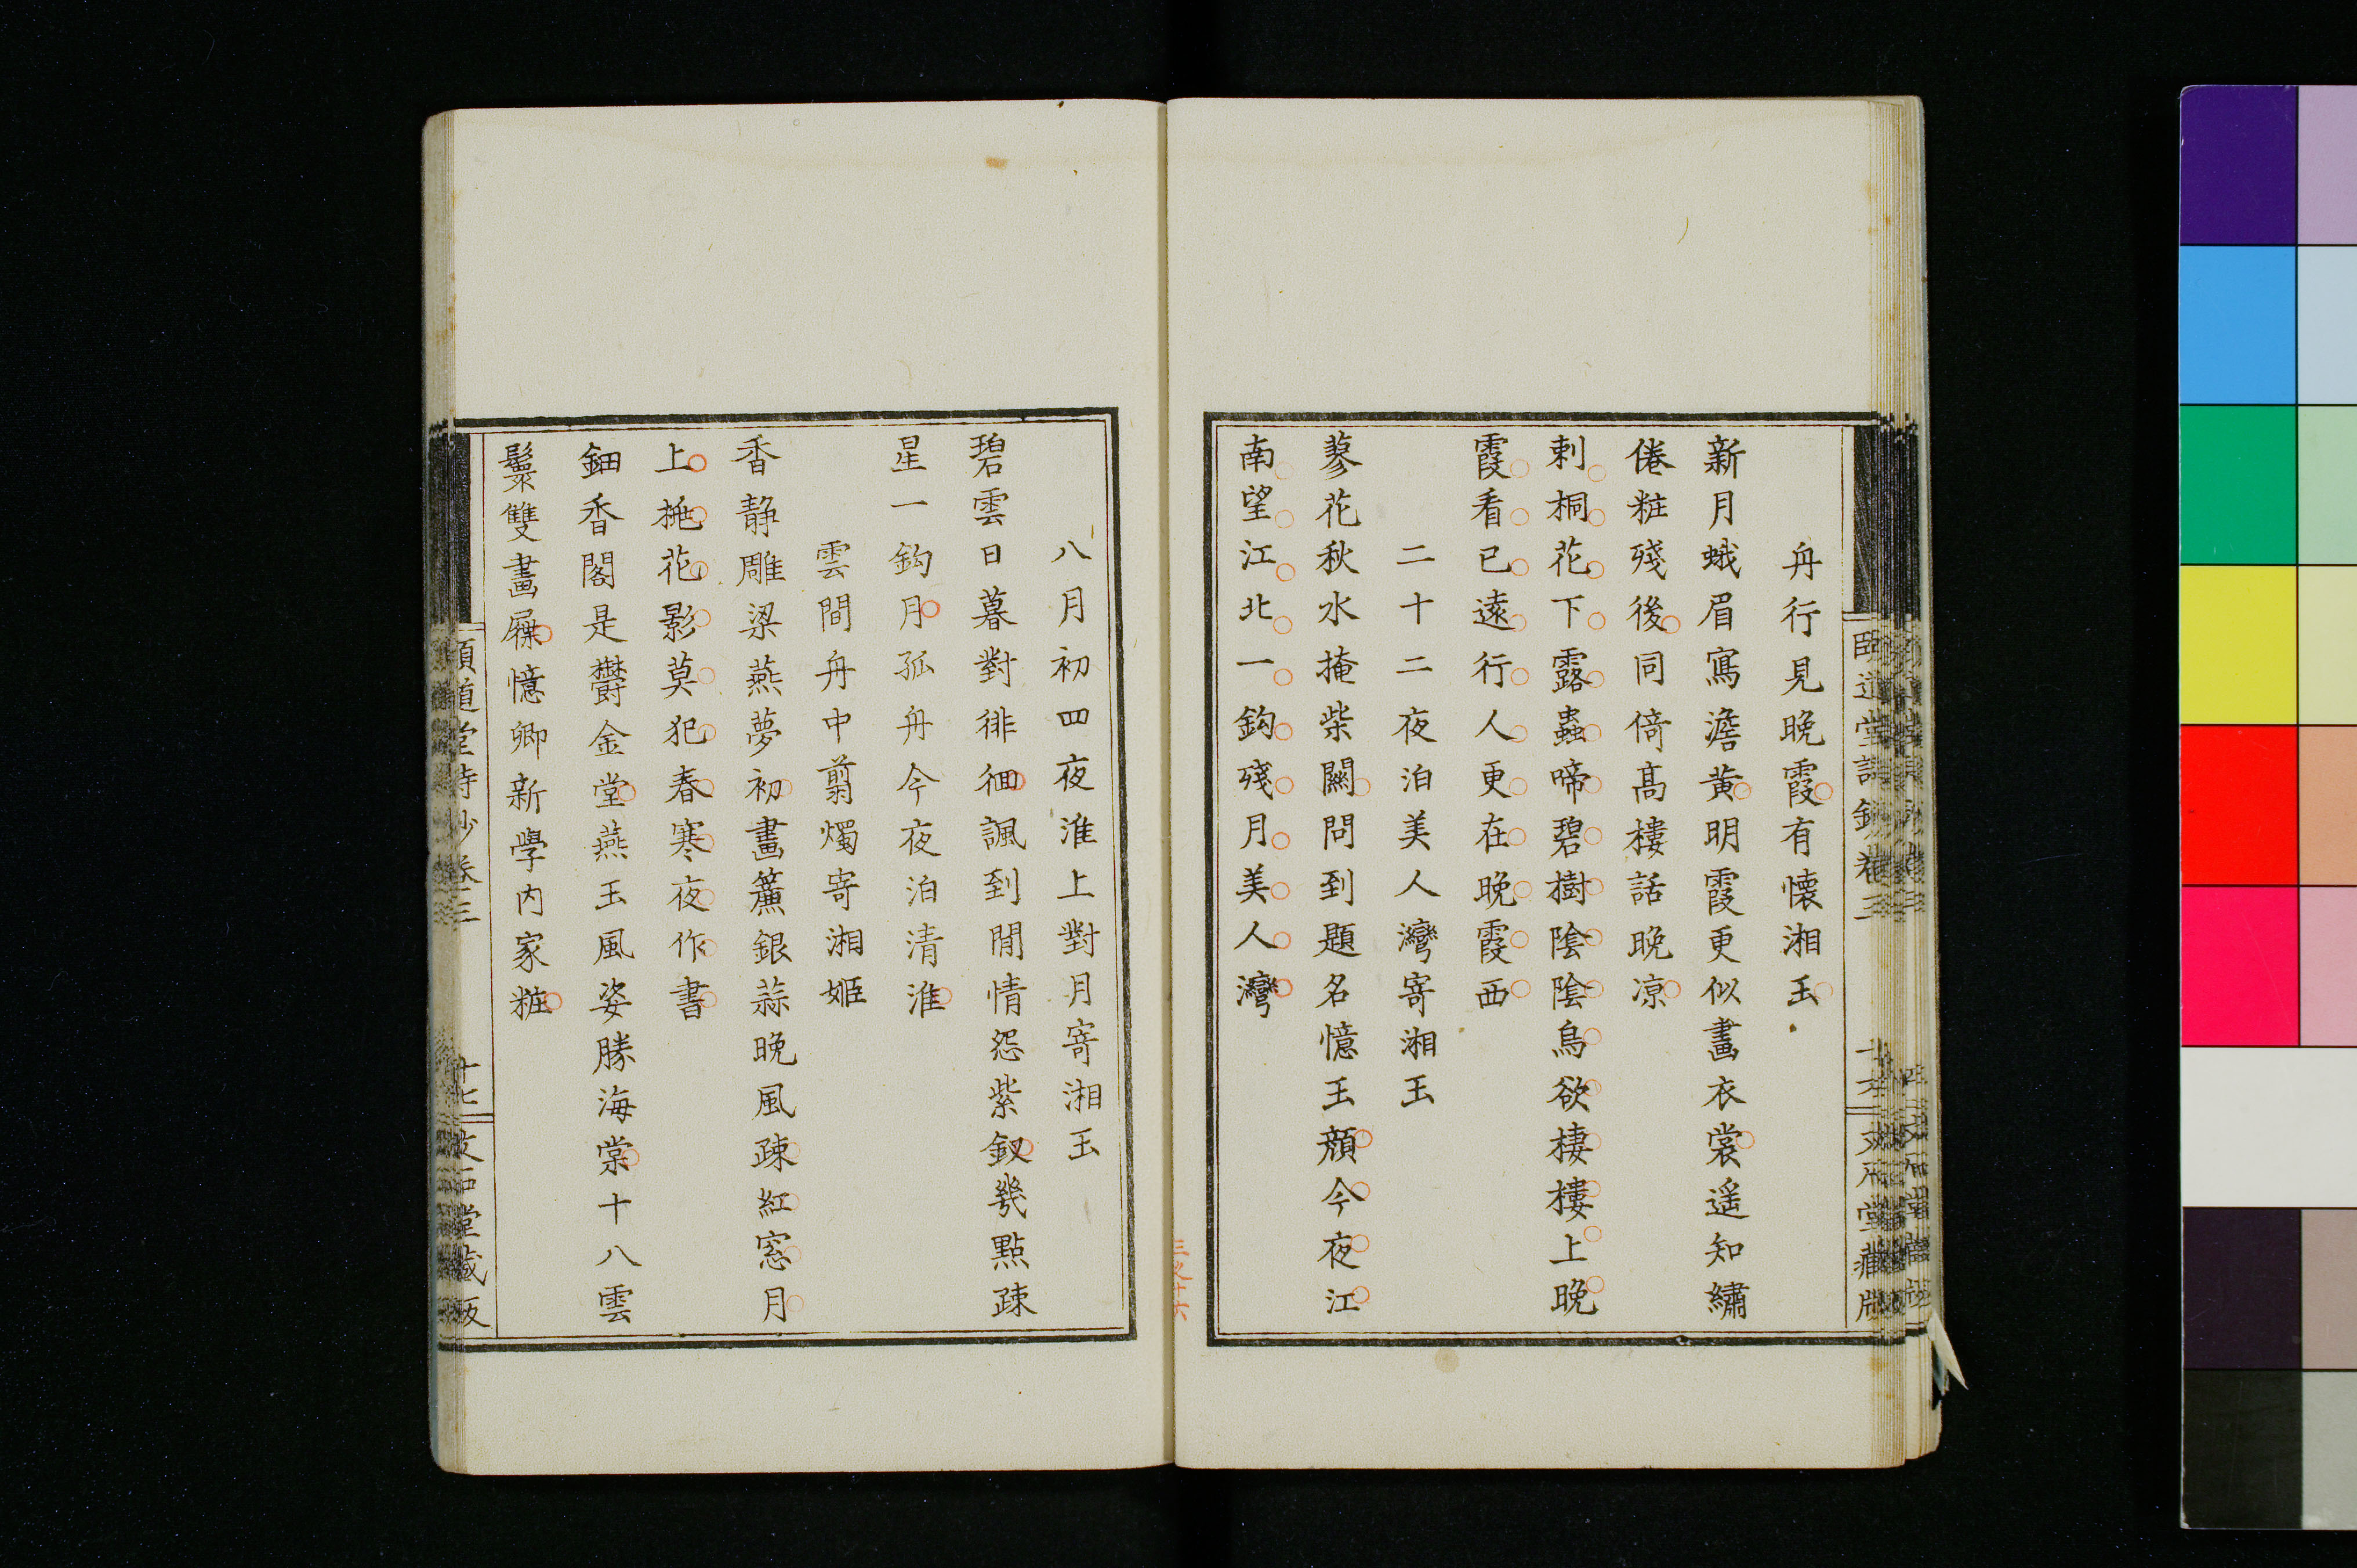 舟行見晚霞有懐湘玉
新月蛾眉寫澹黃明霞更似畫衣裳遥知繡
倦粧殘後同倚髙樓話晚凉
刺桐花下露蟲啼碧樹陰陰烏欲棲樓上晚
霞看已遠行人更在晚霞西
二十二夜泊美人灣寄湘玉
蓼花秋水掩柴關問到題名憶玉顔今夜江
南望江北一鈎殘月美人灣
三之十六
八月初四夜淮上對月寄湘玉
碧雲日暮對徘徊諷到閒情怨紫釵幾點疎
星一鈎月孤舟今夜泊清淮
雲間舟中翦燭寄湘姬
香静雕梁燕夢初畫簾銀蒜晚風疎紅窓月
上拖花影莫犯春寒夜作書
鈿香閣是欝金堂燕玉風姿勝海棠十八雲
鬟雙畫屧憶卿新學内家粧
頤道堂詩鈔卷三
十七
文石堂藏版